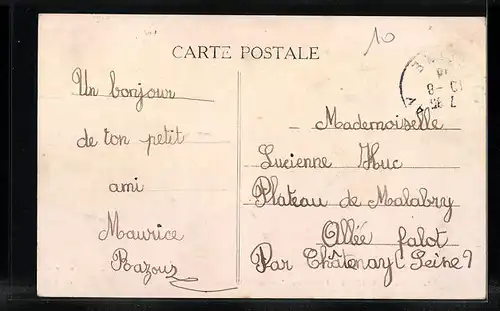 10
CARTE POSTALE
Un bonjour
de ton petit
ami
Maurice
Mademoiselle
Lucienne Huc
Plateau de Malabry
Allée falot
Par Châtenay (Seine)